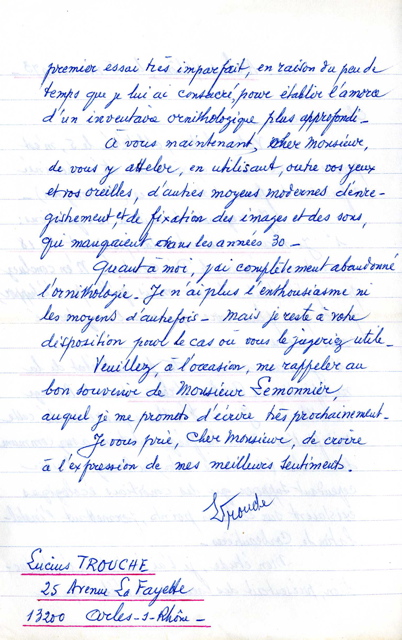 premier essai très imparfait, en raison du peu de
temps que je lui ai consacré, pour établir l'amorce
d'un inventaire ornithologique plus approfondi -
À vous maintenant, cher Monsieur,
de vous y atteler, en utilisant, outre vos yeux
et vos oreilles, d'autres moyens modernes d'enre-
gistrement, et de fixation des images et des sons,
qui manquaient dans les années 30 -
Quant à moi, j'ai complètement abandonné
l'ornithologie. Je n'ai plus l'enthousiasme ni
les moyens d'autrefois - Mais je reste à votre
disposition pour le cas où vous le jugeriez utile -
Veuillez, à l'occasion, me rappeler au
bon souvenir de Monsieur Lemonnier,
auquel je me promets d'écrire très prochainement -
Je vous prie, Cher Monsieur, de croire
à l'expression de mes meilleurs sentiments.
LTrouche
Lucius TROUCHE
25 Avenue La Fayette
13200 Arles-s-Rhône -